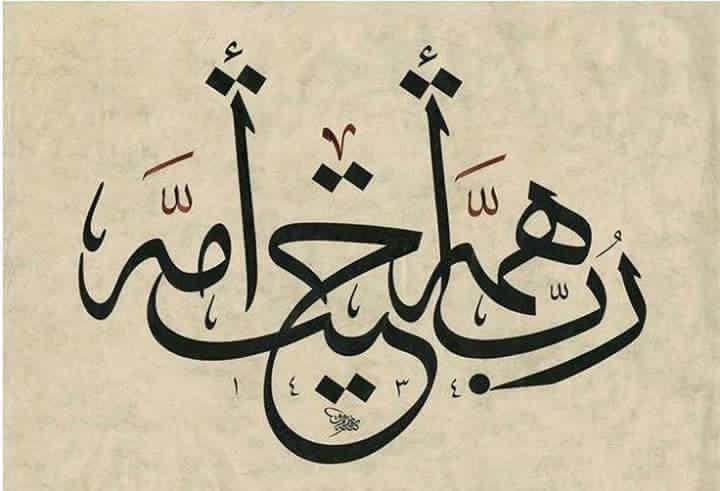 رُبّ همَّة أحيت أمَّة
١٤٣٤